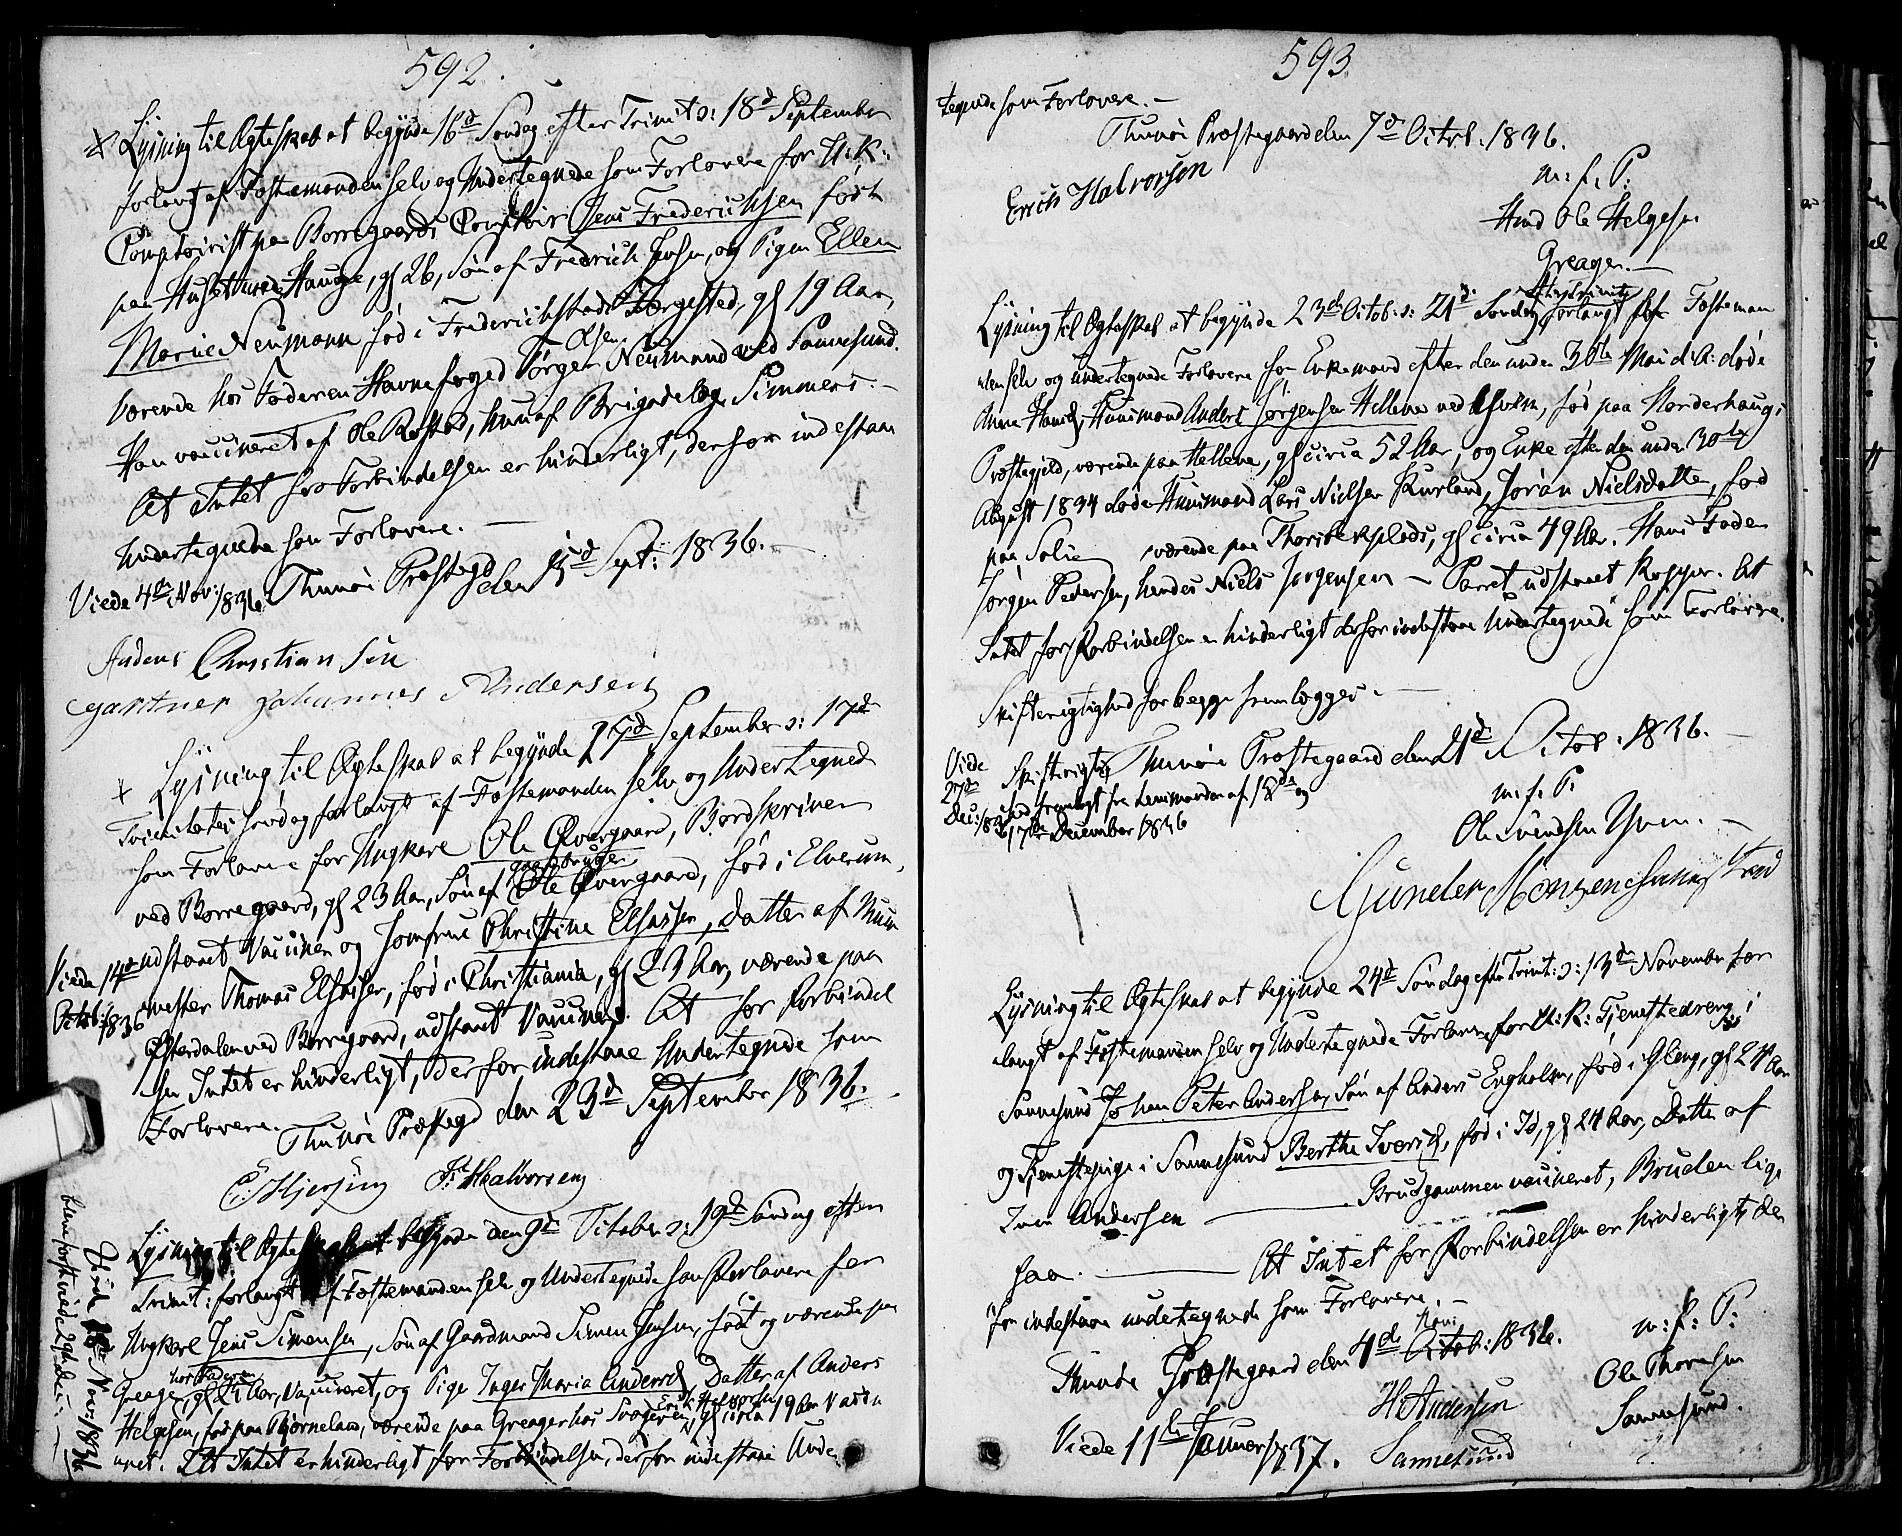 592.
Lysning til Ægteskab at begynde 16d Søndag efter Trinit: 18d September
forlangt af Fæstemanden selv og Undertegnede som Forlovere for U: K:
Comptoirist paa Borregaards Comptoir Jens Frederichsen født
paa Huset Hauge, gl 26, Søn af Fredrich Jensen, og Pigen Ellen
Marie Neumann fød i Frederichstad, gl 19 Aar,
Olsen
værende hos Faderen Havnefoged Jørgen Neumand ved Sannesund.
Han vaccineret af Ole Rostad, hun af Brigadelæge Simmers. –
At Intet for Forbindelsen er hinderligt, derfor indestaae
Undertegnede som Forlovere. –
Viede 4de Nov: 1836. Thunøe Præstegd den 15d Sept: 1836. –
Anders Christiansen
gartner Johannes Andersen
Lysning til Ægteskab at begynde 25d September 17de
Trinitatis søndag forlangt af Fæstemanden selv og Undertegnede
som Forlovere for Ungkarl Ole Øvergaard, Bordskriver
ved Borregaard, gl 23 Aar, Søn af Gaardbruger Ole Øvergaard, fød i Elverum,
udstaaet Vaccinen og Jomfrue Christine Elsasser, Datter af Muur
Viede 14de
mester Thomas Elsasser, fød i Christiania, gl 23 Aar, værende paa
Octob: 1836
Østerdalen ved Borregaard, udstaaet Vaccinen. At for Forbindel
sen Intet er hinderligt, derfor indestaae Undertegnede som
Forlovere.
Thunøe Præstegd den 23d September 1836. –
E. Hjersing P. Halvorsen
Lysning til Ægteskab at begynde den 9de October 19d Søndag efter
Trinit: forlangt af Fæstemanden selv og Undertegnede som Forlovere for
Ungkarl Jens Simensen, Søn af Gaardmand Simen Jensen, født og værende paa
hos Faderen
Greager, gl 21 Aar, vaccineret, og Pige Inger Maria Andersd, Datter af Anders
Erik Halvorsen
Helgesen, fød paa Bjørneland, værende paa Greager hos Svogeren, gl circa 19 Aar vacci
neret. At Intet er hinderligt for Forbindelsen, derfor indestaae Unde
Viede Nov: 1836
bleve først viede 29de Dec: –
593
tegnede som Forlovere. –
Thunøe Præstegaard den 7d Octrb: 1836.
Erich Halvorsen
m: f: P:
Hmd Ole Helgesen
Greager. –
Lysning til Ægteskab at begynde 23de Octob: 21d Søndag efter Trinity forlangt af Fæsteman
den selv og undertegnede Forlovere for Enkemand efter den under 30te Mai d: A: døde
Anne Hansd, Huusmand Anders Jørgensen Hellene ved Holm, fød paa Norderhaugs
Præstegjeld, værende paa Hellene, gl circa 52 Aar, og Enke efter den under 30te
August 1834 døde Huusmand Lars Nielsen Kurland, Jøran Nielsdatter, fød
paa Solie værende paa Thorsbekplads, gl circa 49 Aar. Hans Fader
Jørgen Pedersen, hendes Niels Jørgensen – Parret udstaaet Kopper. At
Intet for Forbindelsen er hinderligt derfor indestaae Undertegnede som Forlovere.
Skifterigtighed for begge fremlægges. –
Thunøe Præstegaard den 21d Octob: 1836. –
Viede
27de
Dec: 1836
Skifterigtig
hed fremlagt fra Lensmanden af
17de December 1836
m: f: P:
Ole Svendsen Yven. –
Gunder Monsen
Lysning til Ægteskab at begynde 24d Søndag efter Trinit: 13de November for
langt af Fæstemanden selv og Undertegnede Forlovere for U: K: Tjenestedreng i
Sannesund Johan Peter Andersen, Søn af Anders Engholm, fød i Gleng, gl 24 Aar
og Tjenestepige i Sannesund Berthe Iversd, fød i Id, gl 24 Aar, Datter af
Iver Andersen — Brudgommen vaccineret, Bruden lige
saa. — At Intet for Forbindelsen er hinderligt, der
for indestaae undertegnede som Forlovere. –
Nov:
Thunøe Præstegaard den 4de Octob: 1836.
m: f: P:
H Andersen
Ole Thoresen
Sannesund
Sannesund.
Viede 11te Januar 1837.